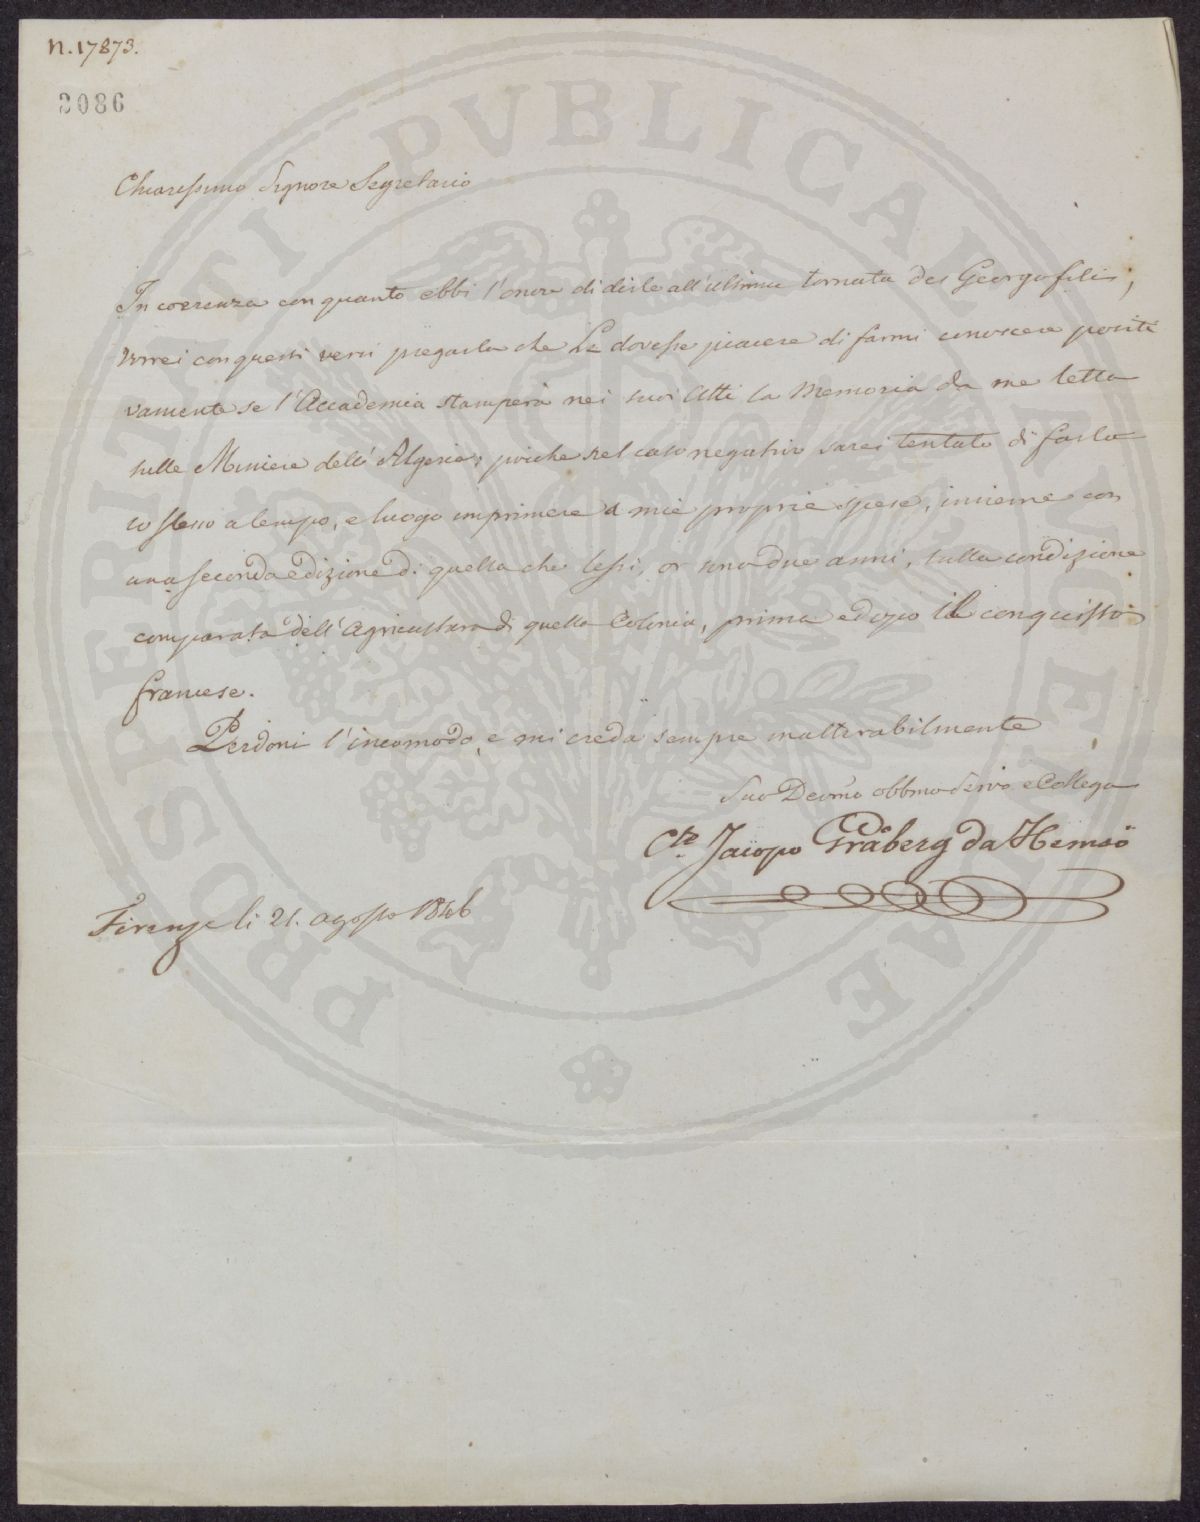 n. 17873.
2086
Chiarissimo Signore Segretario
In coerenza con quanto ebbi l'onore di dirle all'ultima tornata dei Georgofili,
vorrei con questi versi pregarla che Le dovesse piacere di farmi conoscere positi
vamente se l'Accademia stamperà nei suoi Atti la Memoria da me letta
sulle Miniere dell'Algeria; poiche nel caso negativo sarei tentato di farla
lo stesso a tempo, e luogo imprimere a mie proprie spese, insieme con
una seconda edizione di quella che lessi, or sono due anni, sulla condizione
comparata dell'Agricultura di quella Colonia, prima e dopo il conquisto
francese.
Perdoni l'incomodo, e mi creda sempre inalterabilmente
Suo Devmo obbmo Servo e Collega
Cte Jacopo Gråberg da Hemsö
Firenze li 21. agosto 1846
PROSPERITATI PVBLICAE AVGENDAE